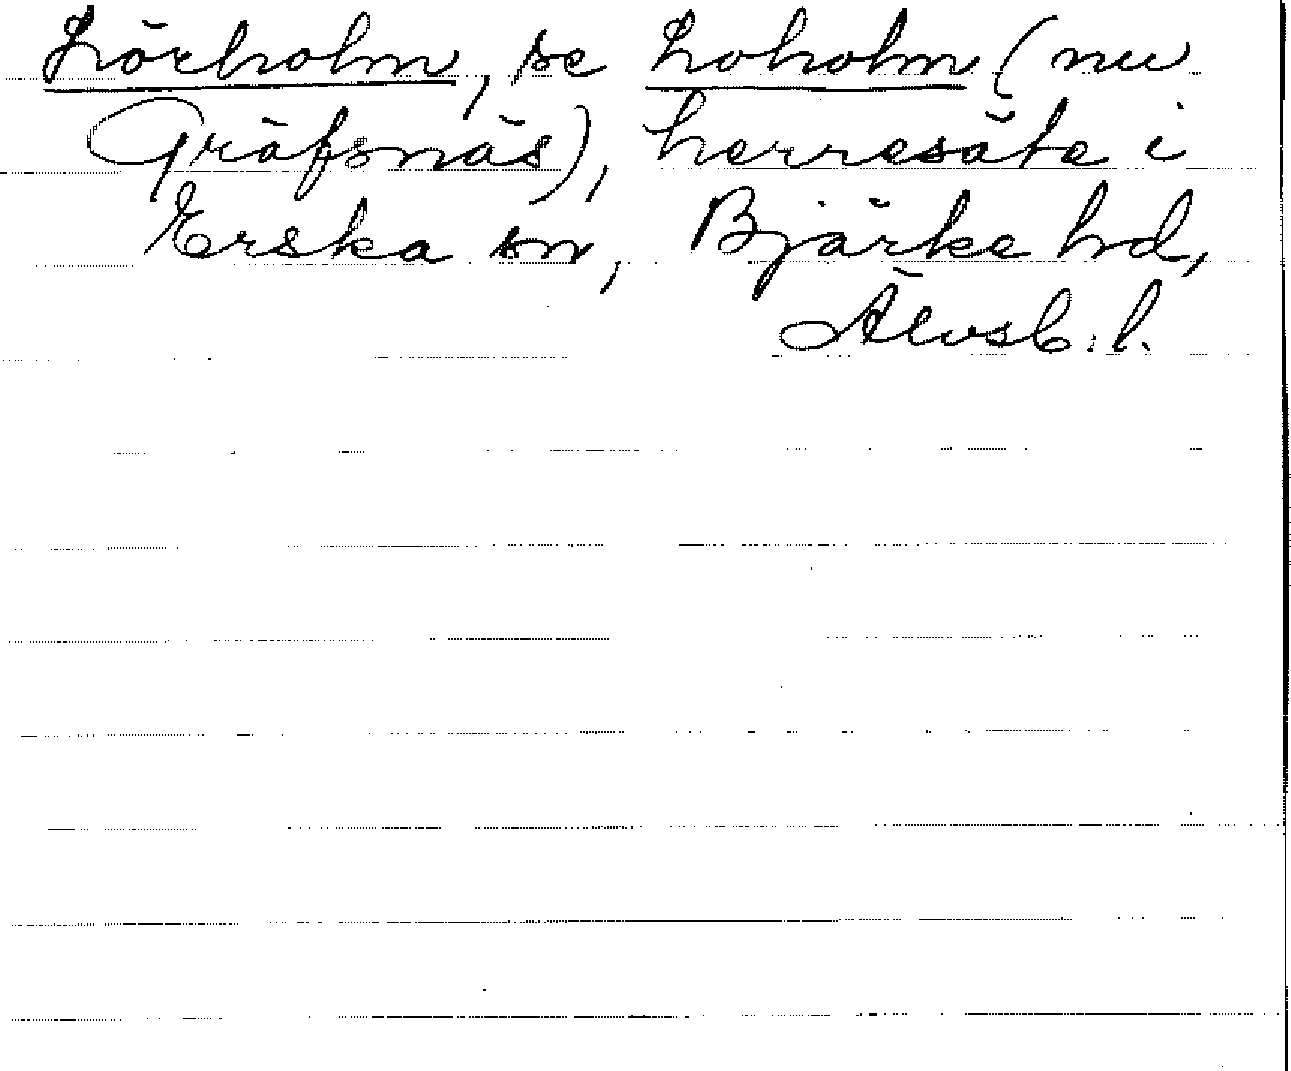 Lörholm, se Loholm (nu
Gräfsnäs), herresäte i
Erska sn, Bjärke hd,
Älvsb. l.